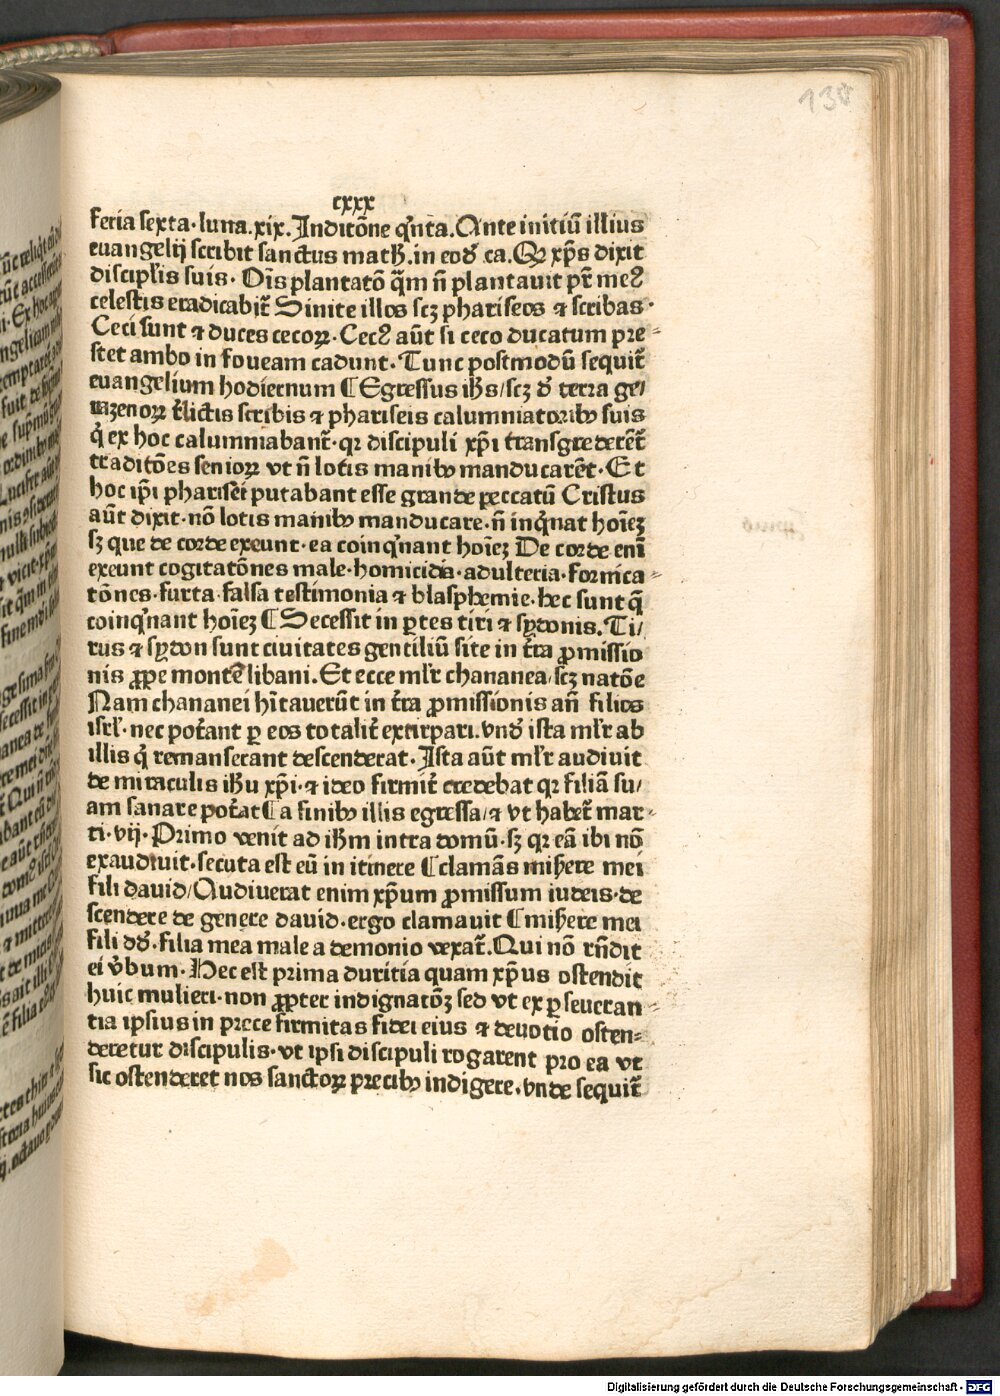 138
cxxx
feria sexta· luna .xix. Inditōne q̇nta. Ante initiū illius
euangelij scribit sanctus matḣ. in eodē ca. Qꝫ xp̄s dixit
discipl̄is suis· Oīs plantatō q̄m n̄ plantauit pr̄ meꝰ
celestis eradicabit̄ Sinite illos scꝫ phariseos ⁊ scribas·
Ceci sunt ⁊ duces cecoꝝ· Cecꝰ aūt si ceco ducatum pre⸗
stet ambo in foueam cadunt· Tunc postmodū sequit̄
euangelium hodiernum ¶ Egressus ih̄s/ scꝫ d̄ terra ge/
nazenoꝝ r̄lictis scribis ⁊ phariseis calumniatoribꝫ suis
q̇ ex hoc calumniabant̄· qꝛ discipuli xp̄i transgrederēt̄
traditōes senioꝝ vt n̄ lotis manibꝫ manducarēt· Et
hoc ip̄i pharisei putabant esse grande peccatū Cristus
aūt dixit· nō lotis manibꝫ manducare· n̄ inq̇nat hoīeꝫ
sꝫ que de corde exeunt· ea coinq̇nant hoīeꝫ De corde enī
exeunt cogitatōnes male· homicidia· adulteria· fornica⸗
tōnes· furta· falsa testimonia ⁊ blasphemie. hec sunt q̄
coinq̇nant hoīeꝫ ¶ Secessit in ꝑtes tiri ⁊ sydonis. Ti/
rus ⁊ sydon sunt ciuitates gentiliū site in tr̄a ꝓmissio
nis ꝓpe montē libani. Et ecce ml̄r chananea/ scꝫ natōe
Nam chananei hītauerūt in tr̄a ꝓmissionis an̄ filios
isrl̄· nec pota̅nt ꝑ eos totalit̄ extirpari. vnd̄ ista ml̄r ab
illis q̇ remanserant descenderat· Ista aūt ml̄r audiuit
de miraculis ih̄u xp̄i· ⁊ ideo firmit̄ credebat qꝛ filiā su/
am sanare pot̄at ¶ a finibꝫ illis egressa/ ⁊ vt habet̄ mar⸗
ci· vij· Primo venit ad ih̄m intra domū· sꝫ qꝛ eā ibi nō
exaudiuit· secuta est eū in itinere ¶ clamās mih̄ere mei
fili dauid/ Audiuerat enim xp̄um ꝓmissum iudeis· de
scendere de genere dauid· ergo clamauit ¶ mih̄ere mei
fili dd̄. filia mea male a demonio vexat̄. Qui nō rn̄dit
ei v̄bum· Hec est prima duritia quam xp̄us ostendit
huic mulieri· non ꝓpter indignatōꝫ sed vt ex ꝑseueran⸗
tia ipsius in prece firmitas fidei eius ⁊ deuotio osten⸗
deretur discipulis· vt ipsi discipuli rogarent pro ea vt
sic ostenderet nos sanctoꝝ precibꝫ indigere. vnde sequit̄
Digitalisierung gefördert durch die Deutsche Forschungsgemeinschaft - DFG